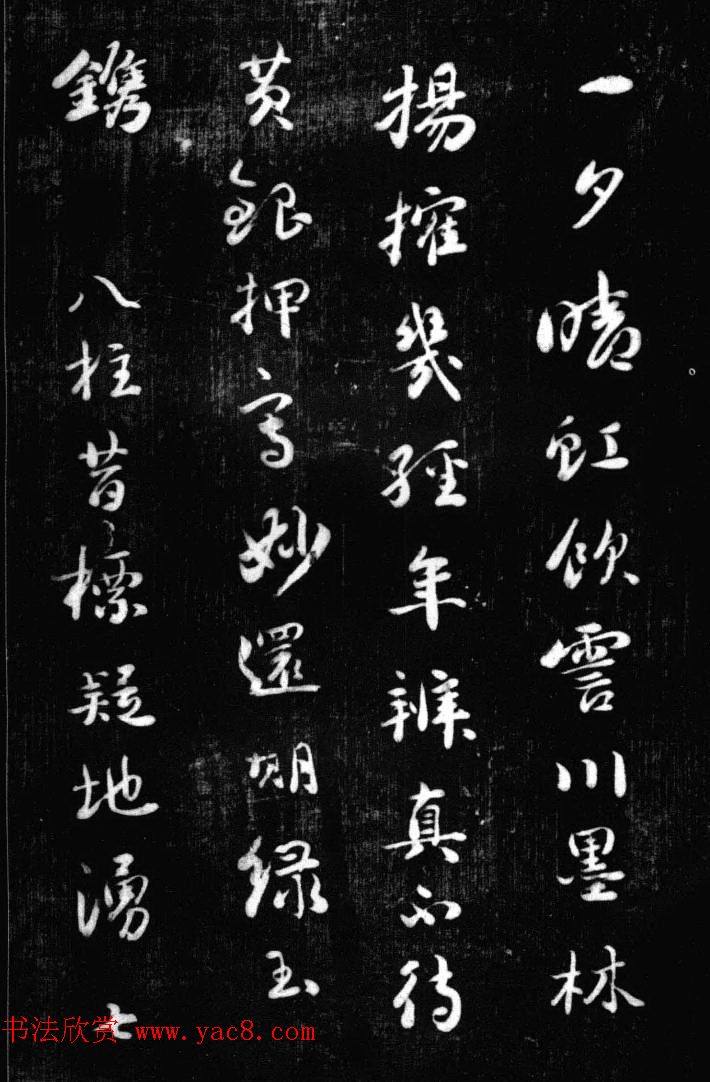 一夕晴虹飲霅川墨林
揚搉幾經年辨真不待
黄銀押寫妙還期緑玉
鐫 八柱昔標疑地湧
书法欣赏 www.yac8.com